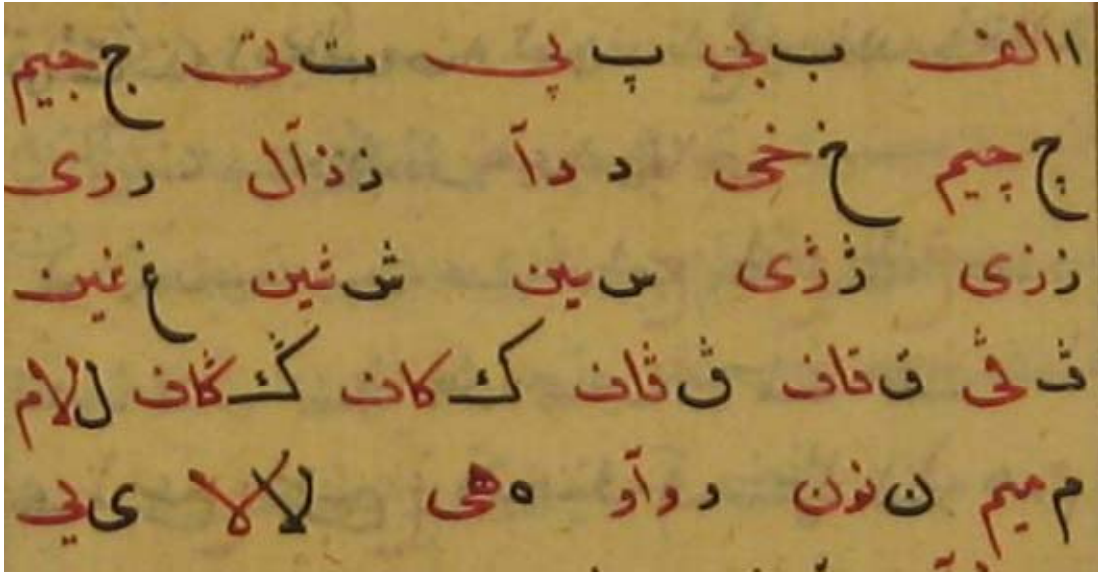 ا االف ب بی پ پی ت تی ج جیم
چ چیم خ خی د دآ ذ ذآل ر ری
ز زی ژ ژی س سین ش شین غ غین
ف فی ق قاف ڨ ڨاف ک کاف ݣ ݣاف ل لام
م میم ن نون و وآو ه هی لا لا ی یی